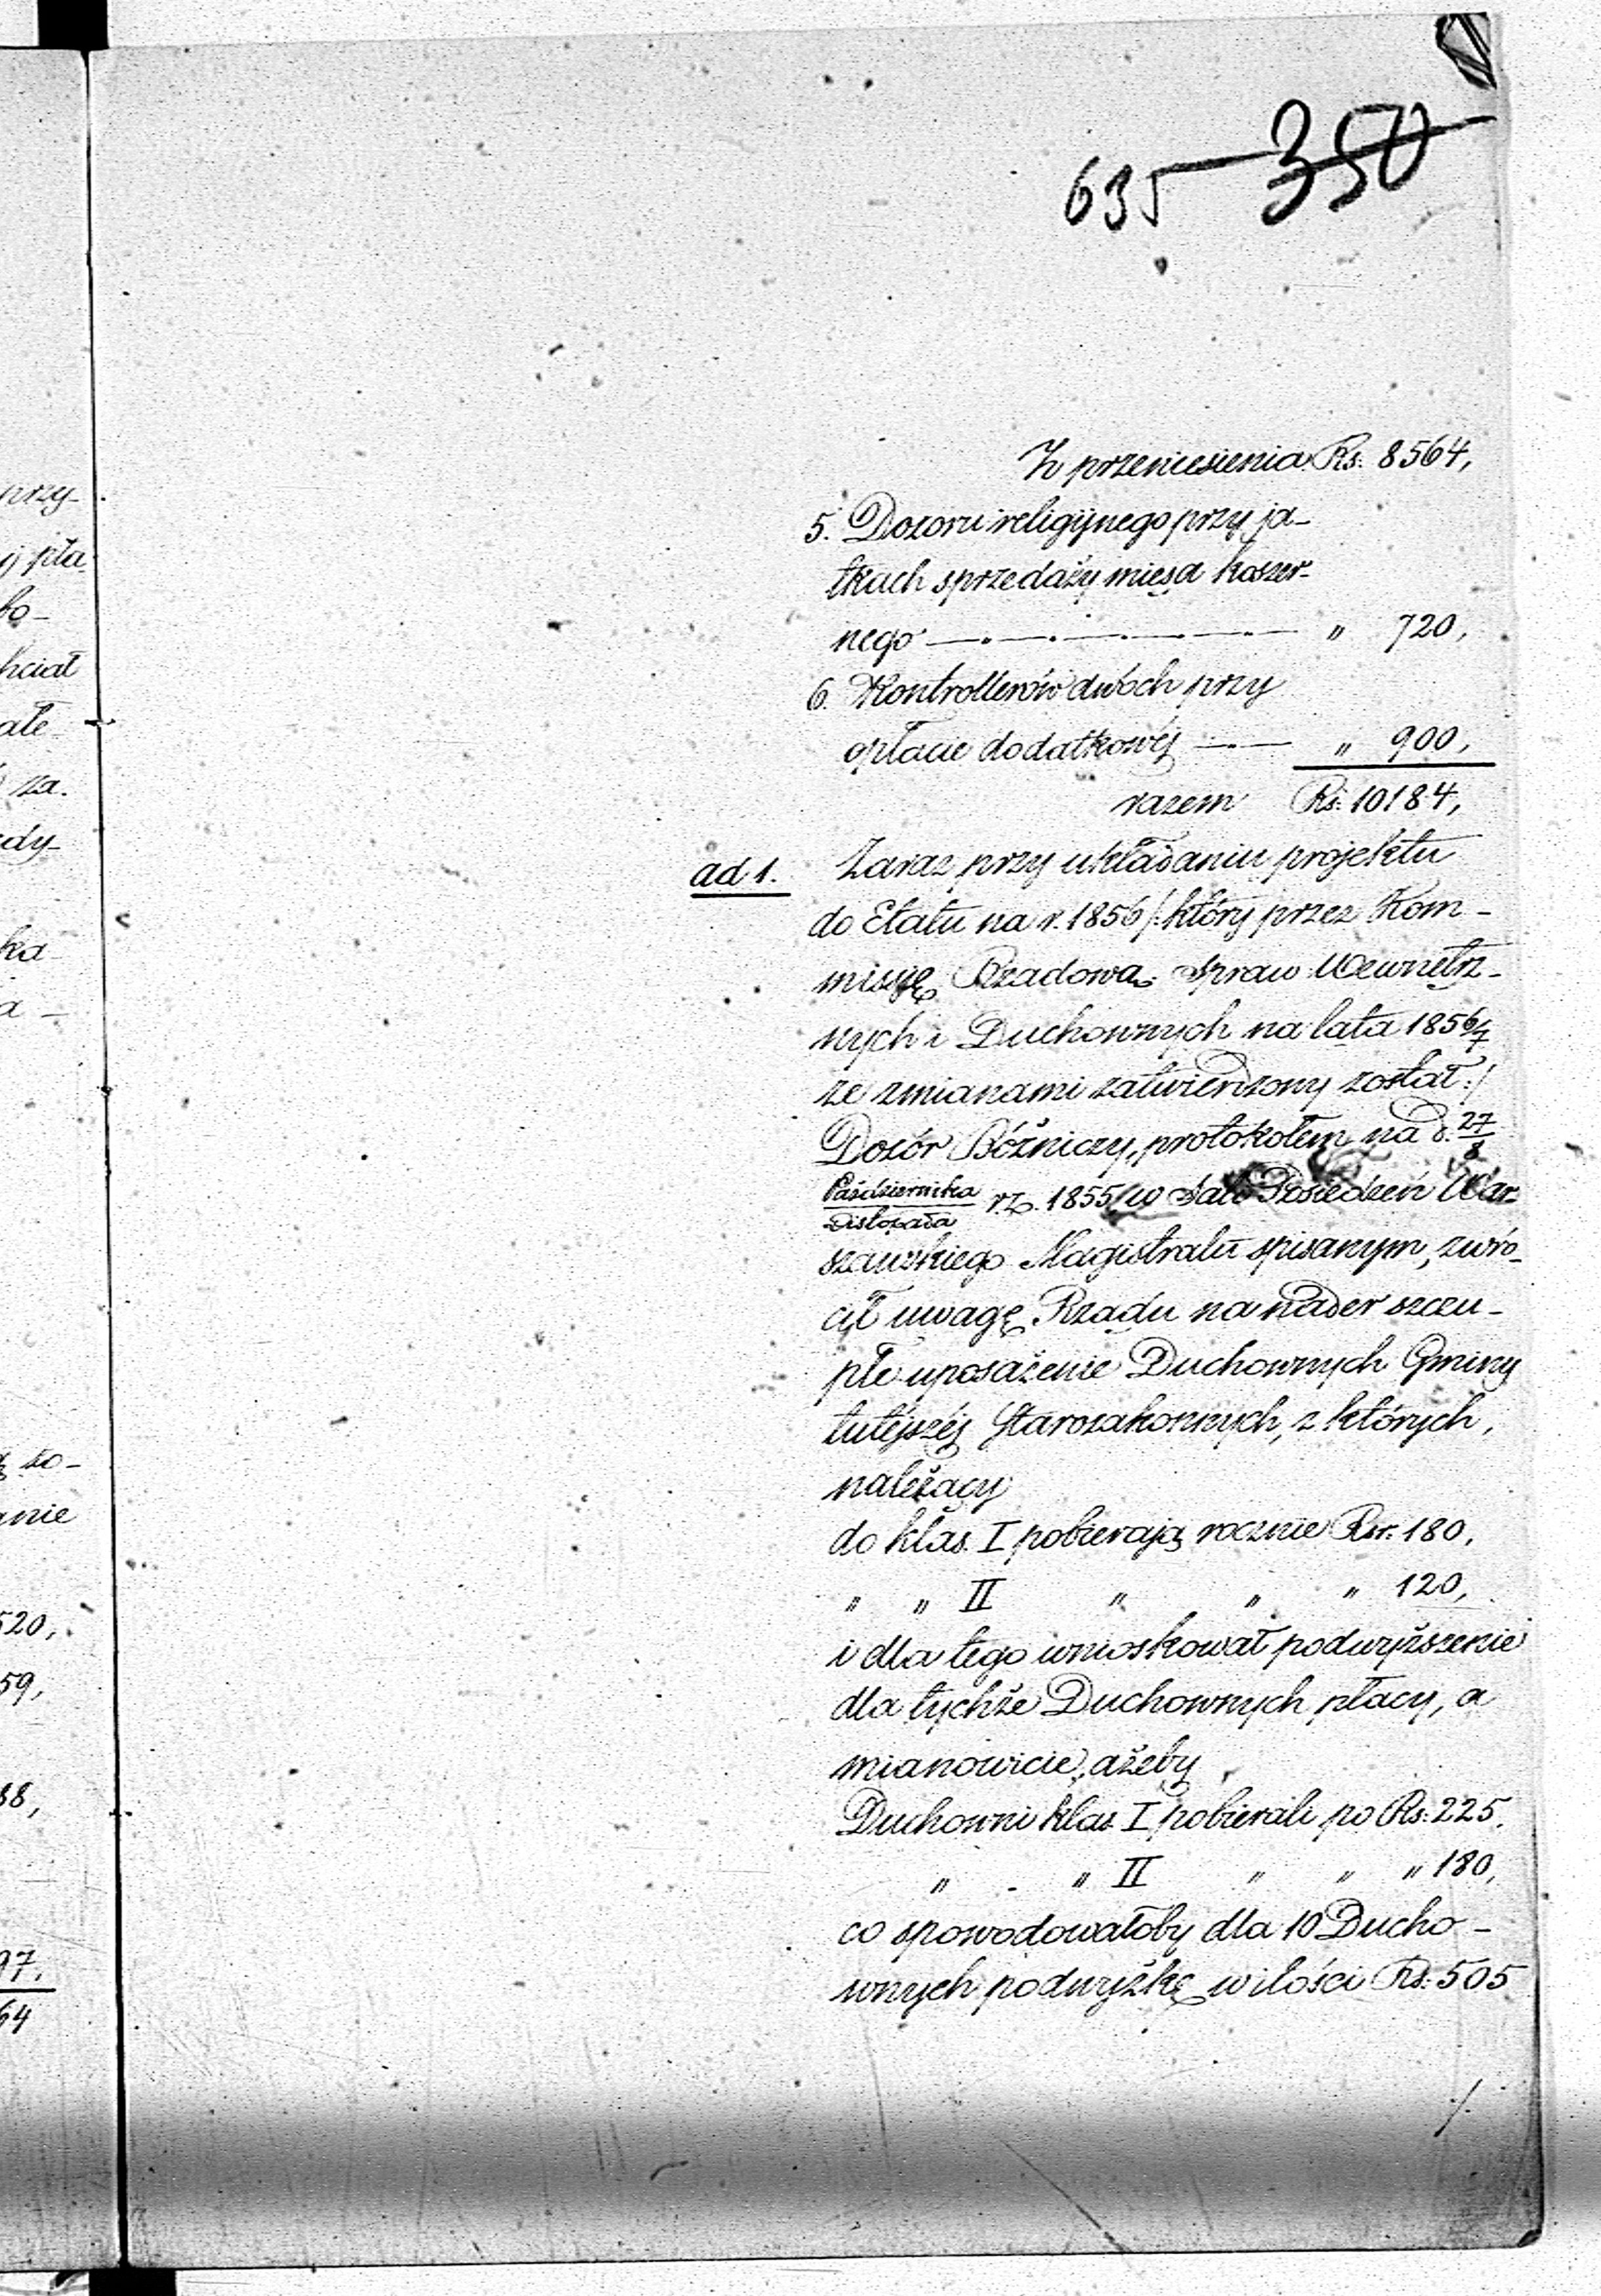 635 350
Z przeniesienia Rs: 8564,
5. Dozoru religijnego przy ja-
tkach sprzedaży mięsa koszer-
nego — „ 720,
6. Kontrollerów dwóch przy
opłacie dodatkowéj — „ 900,
razem Rs: 10184,
ad 1. Zaraz przy układaniu projektu
do Etatu na r. 1856 /: który przez Kom-
missyę Rządową Spraw Wewnętrz-
nych i Duchownych na lata 1856/7
ze zmianami zatwierdzony został :/
Dozór Bóżniczy, protokołem na d. 27/8
Października/Listopada r. z. 1855 w Sali Posiedzeń War-
szawskiego Magistratu spisanym, zwró-
cił uwagę Rządu na nader szczu-
płe uposażenie Duchownych Gminy
tutéjszéj Starozakonnych, z których,
należący
do klas. I pobierają rocznie Rsr. 180,
„ „ II „ „ „ 120,
i dla tego wnioskował podwyższenie
dla tychże Duchownych płacy, a
mianowicie, ażeby
Duchowni klas I pobierali po Rs: 225,
„ „ II „ „ „ 180,
co spowodowałoby dla 10 Ducho-
wnych podwyżkę w ilości Rs: 505
./.
przy-
ij pła-
bo-
hciał
ałe
za.
edy-
ka
a -
zo-
anie
520,
59,
88,
97,
64